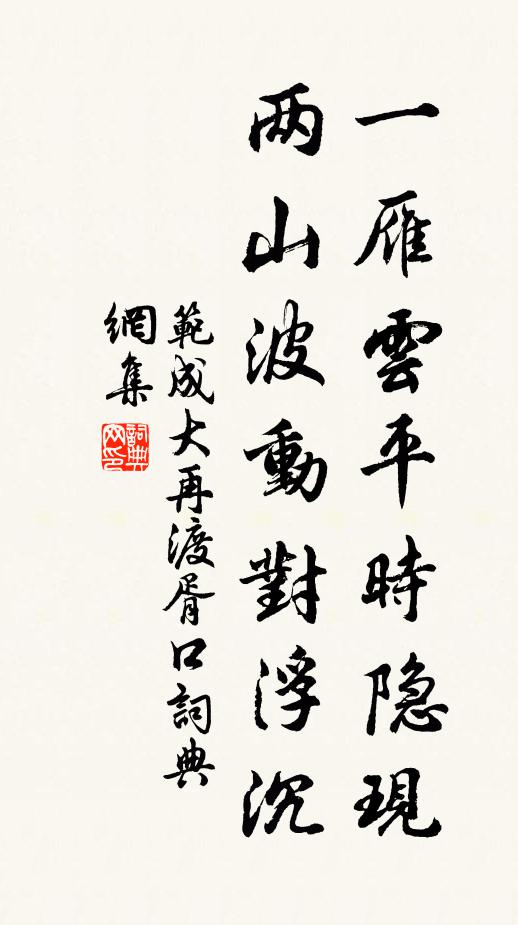 一雁雲平時隐現
两山波動對浮沉
範成大再渡胥口詞典
網集
詞典網印